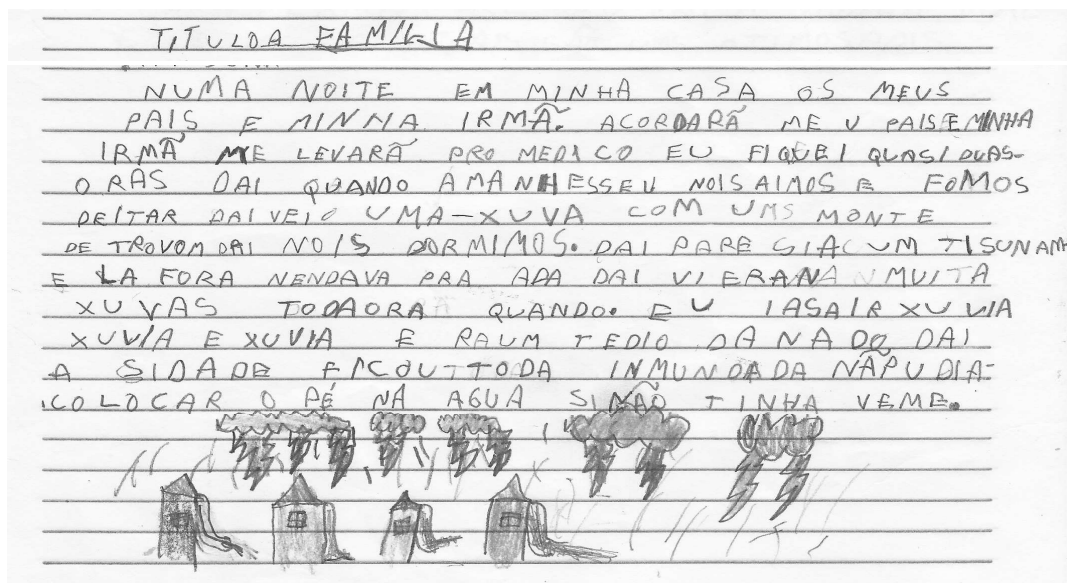 TITULO A FAMILIA
NUMA NOITE EM MINHA CASA OS MEUS
PAIS E MINNA IRMÃ. ACORDARÃ ME U PAIS E MINHA
IRMÃ ME LEVARÃ PRO MEDICO EU FIQUEI QUASI DUAS-
ORAS DAI QUANDO AMANHESSEU NOIS AIMOS E FOMOS
DEITAR DAI VEIO UMA-XUVA COM UMS MONTE
DE TROVOM DAI NOIS DORMIMOS. DAI PARESIA CUM TISUNAM
E LA FORA NENDAVA PRA ADA DAI VIERANA MUITA
XUVAS TODAORA QUANDO. EU IASAIR XUVIA
XUVIA E XUVIA ERAUM TEDIO DANADO DAI
A SIDADE FICOUTTODA INMUNDADA NÃPUDIA-
COLOCAR O PÉ NA AGUA SINÃO TINHA VEME.